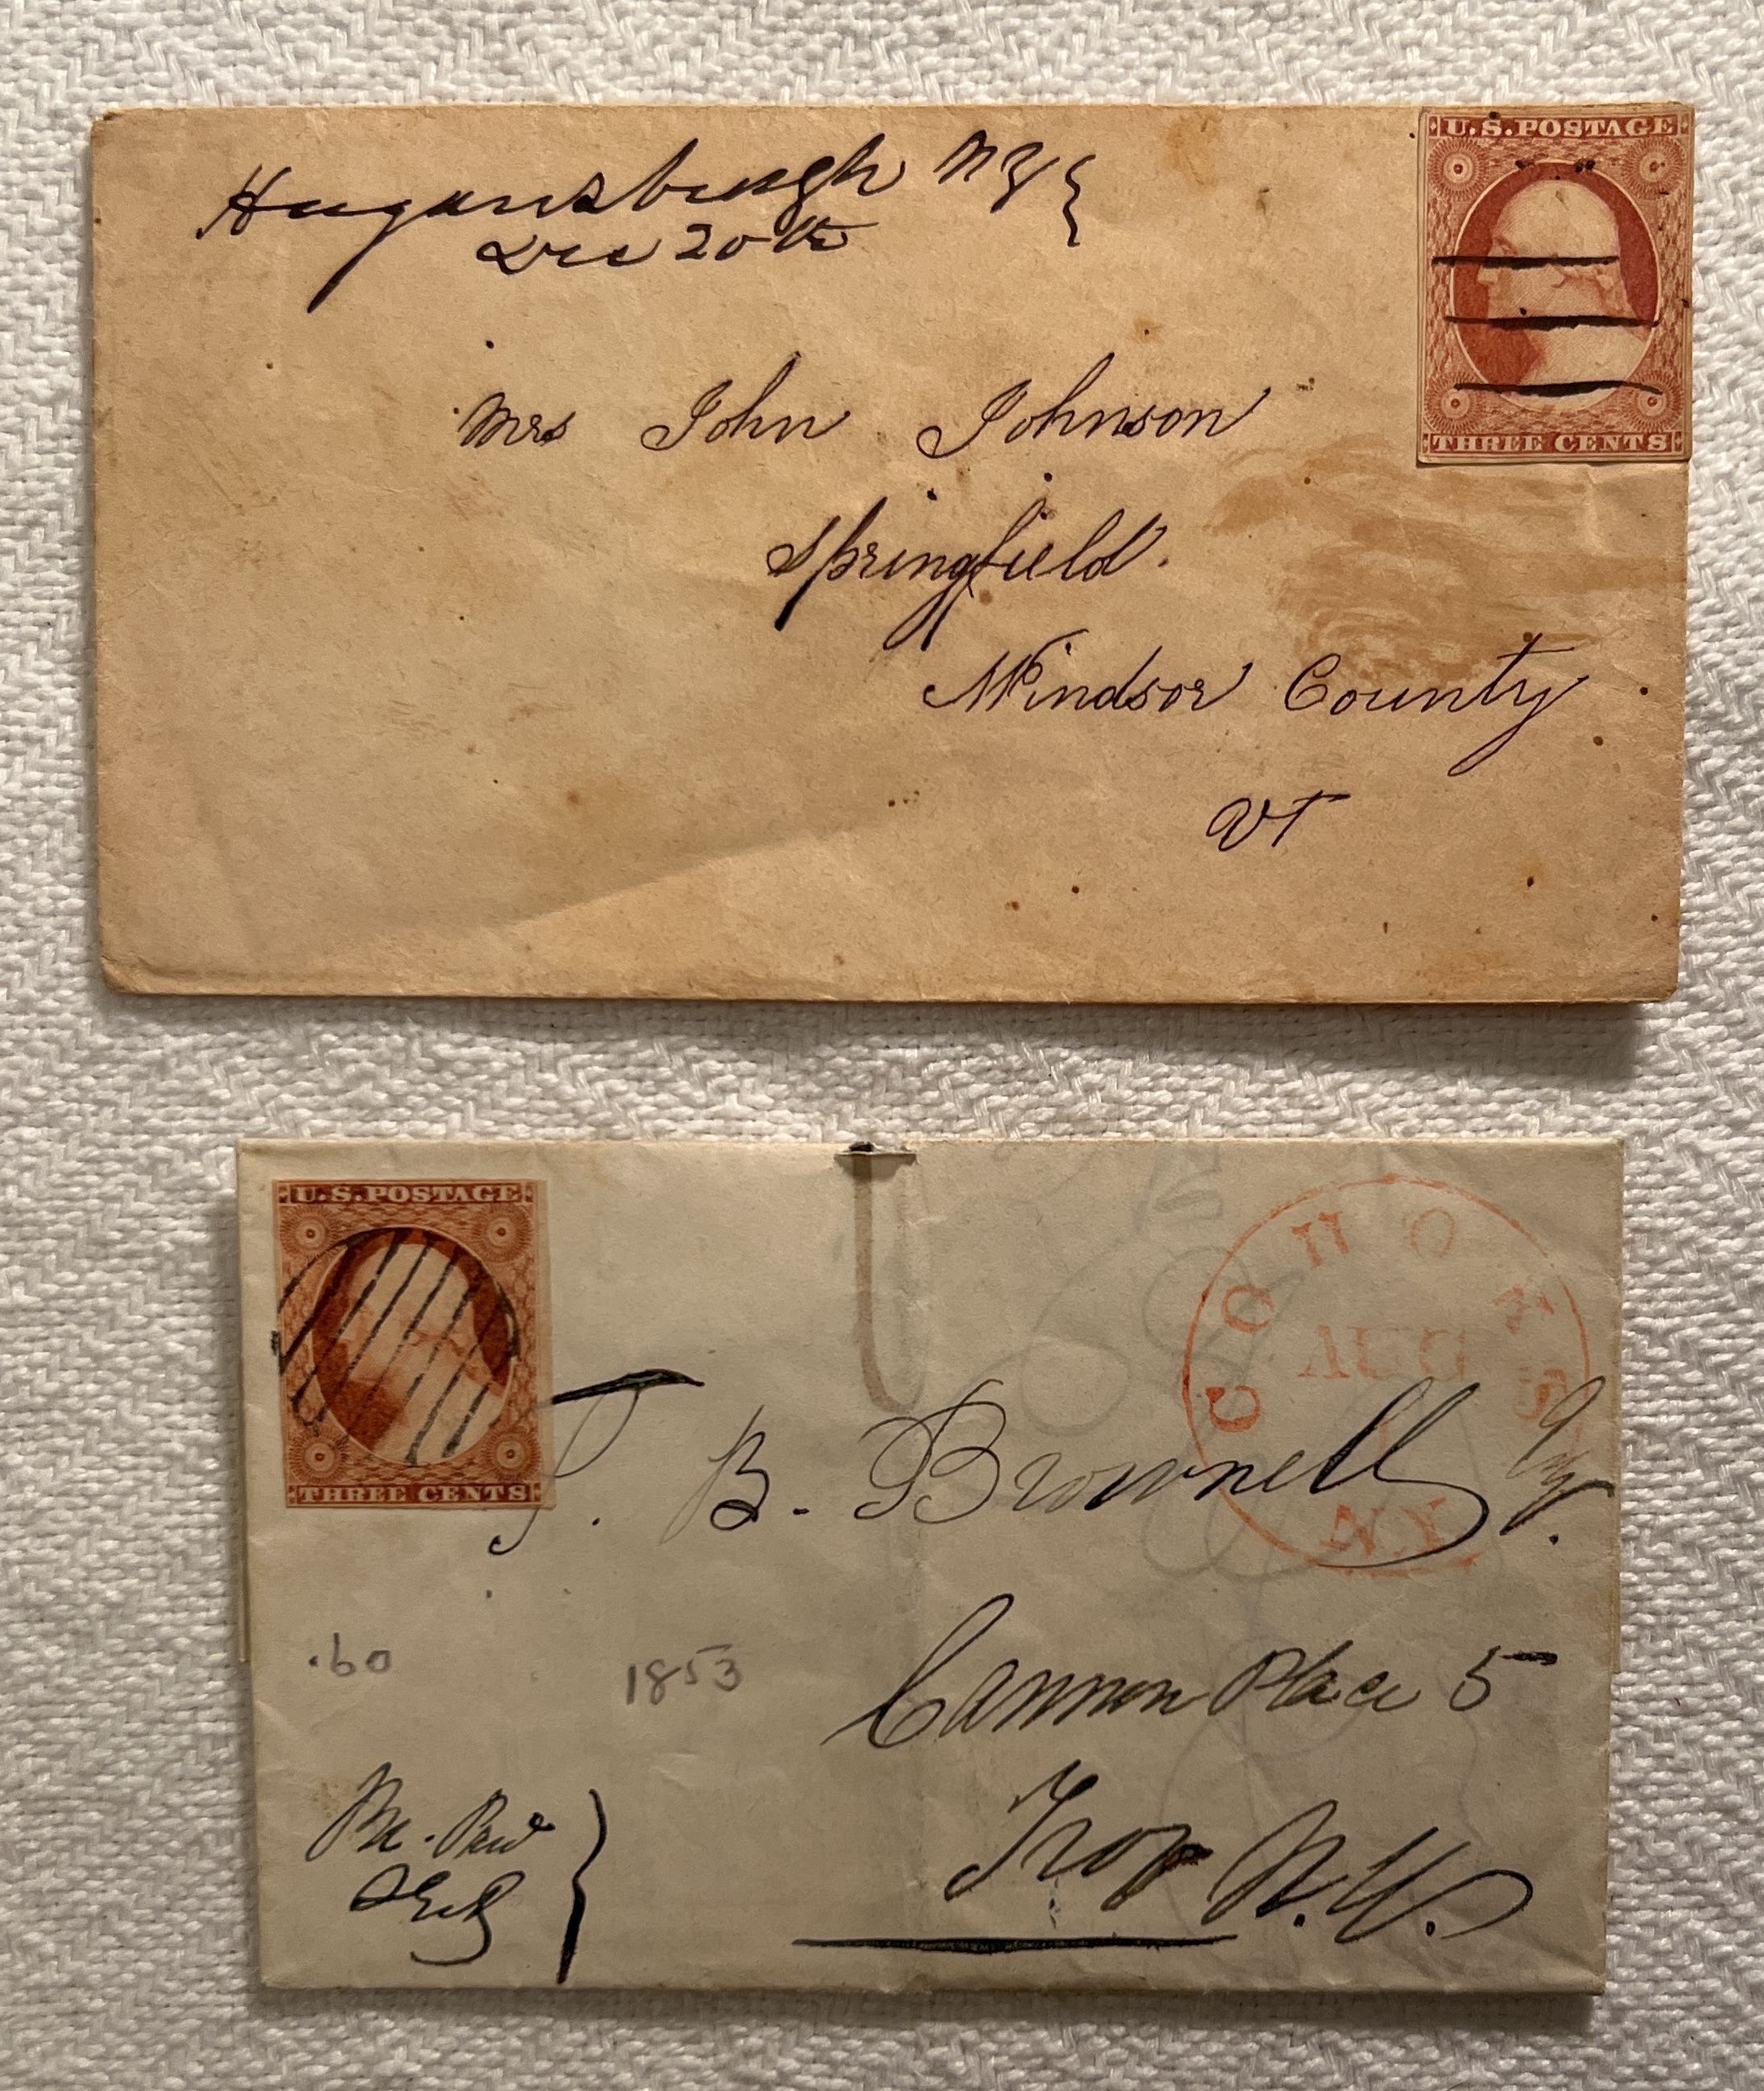 Hugansburgh NY
Dec 20th
U.S. POSTAGE
THREE CENTS
Mrs John Johnson
Springfield.
Windsor County
VT
U.S. POSTAGE
THREE CENTS
COHOES
AUG
5
N.Y.
T. B. Brownell
Cannon Place 5
Troy N.Y.
.60
1853